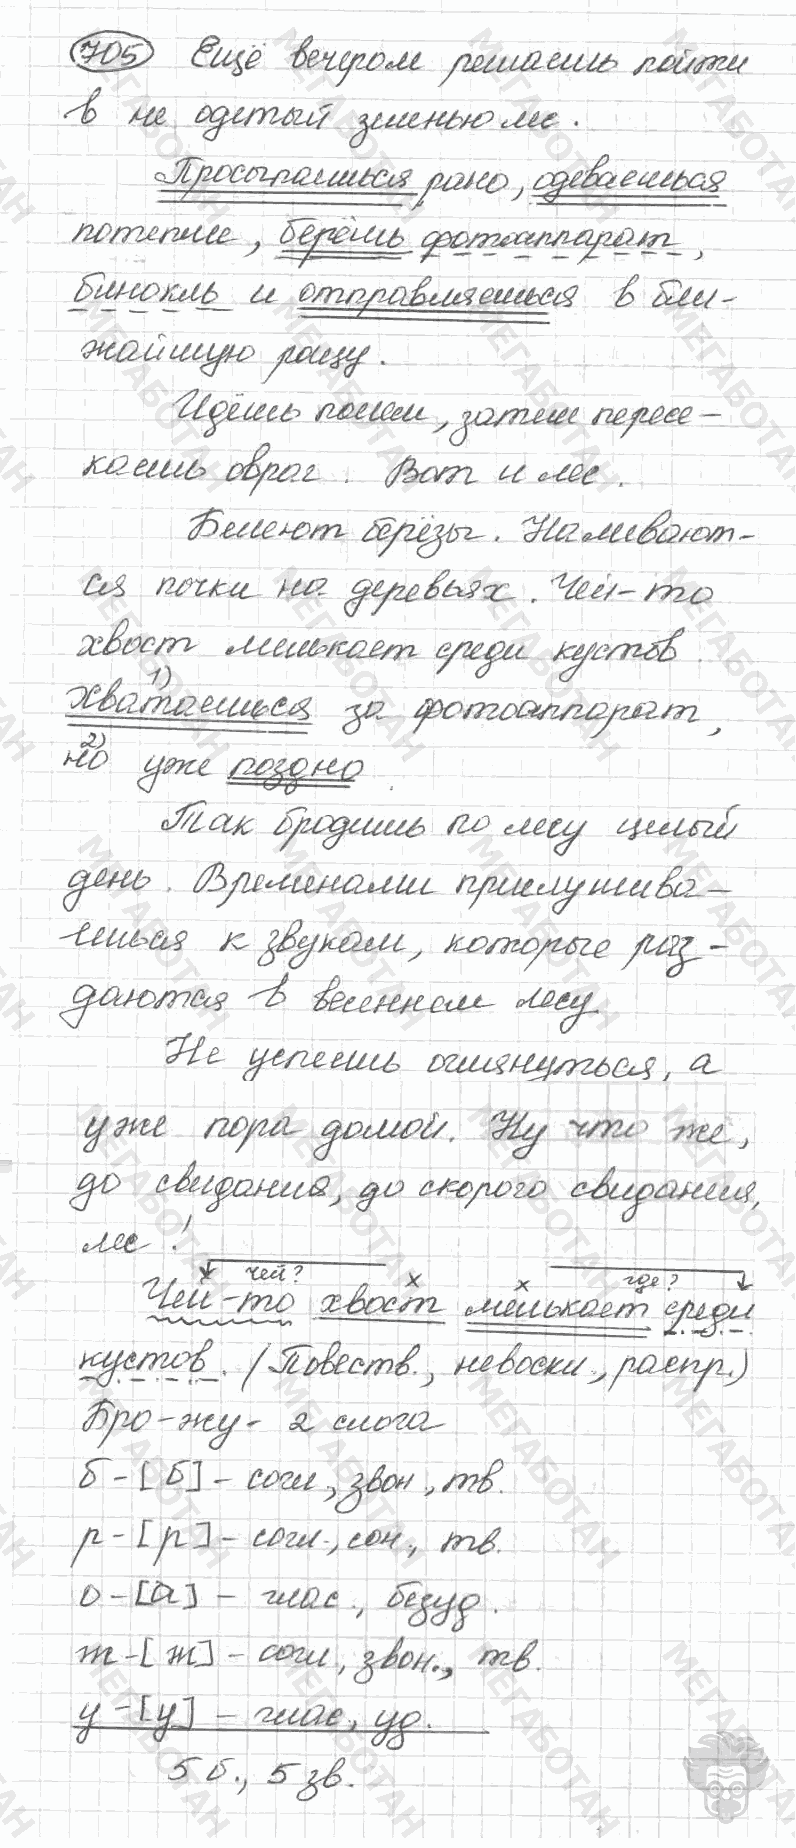 705 Ещё вечером решаешь пойти
в не одетый зеленью лес.
Просыпаешься рано, одеваешься
потеплее, берёшь фотоаппарат,
бинокль и отправляешься в бли-
жайшую рощу.
Идёшь полем, затем пересе-
каешь овраг. Вот и лес.
Белеют берёзы. Наливают-
ся почки на деревьях. Чей-то
хвост мелькает среди кустов.
1)
Хватаешься за фотоаппарат,
2)
но уже поздно.
Так бродишь по лесу целый
день. Временами прислушива-
ешься к звукам, которые раз-
даются в весеннем лесу.
Не успеешь оглянуться, а
уже пора домой. Ну что же,
до свидания, до скорого свидания,
лес!
чей? х х где?
Чей-то хвост мелькает среди
кустов. (Повеств., невоскл., распр.)
Бро-жу- 2 слога
б-[б]-согл., звон., тв.
р-[р]-согл., сон., тв.
о-[а]- глас., безуд.
ж-[ж]-согл., звон., тв.
у-[у]- глас., уд.
5 б., 5 зв.
МЕГАБОТАН